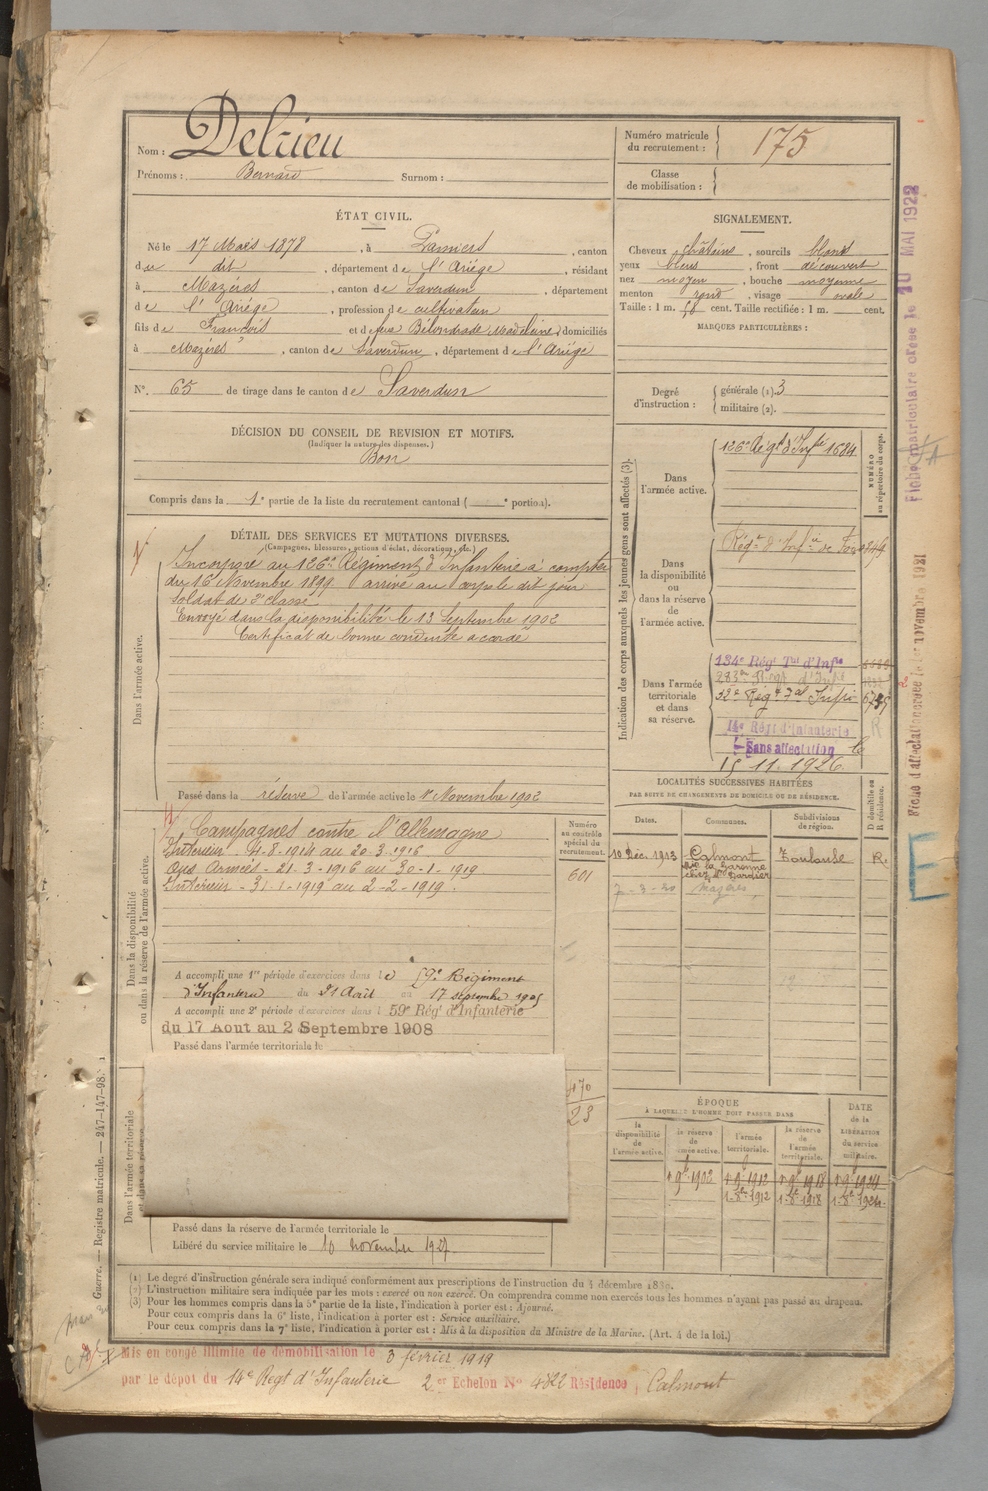 Nom : Delrieu
Prénoms : Bernard Surnom :
Numéro matricule du recrutement : 175
Classe de mobilisation :
ÉTAT CIVIL.
Né le 17 Mars 1878, à Pamiers, canton
de dit, département de l'Ariège, résidant
à Mazères, canton de Saverdun, département
de l'Ariège, profession de cultivateur
fils de François et de feue Bélondrade Madeleine, domiciliés
à Mazères, canton de Saverdun, département de l'Ariège
N°. 65 de tirage dans le canton de Saverdun
SIGNALEMENT.
Cheveux châtains, sourcils blond
yeux bleus, front découvert
nez moyen, bouche moyenne
menton rond, visage ovale
Taille : 1 m. 58 cent. Taille rectifiée : 1 m. cent.
MARQUES PARTICULIÈRES :
Degré d'instruction : générale (1). 3
militaire (2).
DÉCISION DU CONSEIL DE REVISION ET MOTIFS.
(Indiquer la nature des dispenses.)
Bon
Compris dans la 1e partie de la liste du recrutement cantonal ( e portion).
DÉTAIL DES SERVICES ET MUTATIONS DIVERSES.
(Campagnes, blessures, actions d'éclat, décorations, etc.)
Dans l'armée active.
Incorporé au 126e Régiment d'Infanterie à compter
du 16 Novembre 1899 arrivé au corps le dit jour
soldat de 2e classe
Envoyé dans la disponibilité le 13 Septembre 1902
Certificat de bonne conduite accordé
Passé dans la réserve de l'armée active le 1er Novembre 1902
Indication des corps auxquels les jeunes gens sont affectés (3).
NUMÉRO au répertoire du corps.
Dans l'armée active.
126e Régt d'Infie 1684
Dans la disponibilité ou dans la réserve de l'armée active.
Régt d'Infie de
Dans l'armée territoriale et dans sa réserve.
134e Régt Tal d'Infie
283e Régt d'Infie
32e Régt Tal Infie
14e Régt d'Infanterie
Sans affectation le
15.11.1926
Dans la disponibilité ou dans la réserve de l'armée active.
Campagnes contre l'Allemagne
Intérieur - 4-8-1914 au 20-3-1916
Aux Armées - 21-3-1916 au 30-1-1919
Intérieur - 31-1-1919 au 2-2-1919.
Numéro au contrôle spécial du recrutement.
601
A accompli une 1re période d'exercices dans le 59e Régiment
d'Infanterie du 21 Août au 17 septembre 1905
A accompli une 2e période d'exercices dans l 59e Rég' d'Infanterie
du 17 Aout au 2 Septembre 1908
Passé dans l'armée territoriale le
LOCALITÉS SUCCESSIVES HABITÉES
PAR SUITE DE CHANGEMENTS DE DOMICILE OU DE RÉSIDENCE.
Dates. Communes. Subdivisions de région. D domicile ou R résidence.
10 Déc. 1913 Calmont Toulouse R.
7-3-20 Mazères
23
Dans l'armée territoriale
Passé dans la réserve de l'armée territoriale le
Libéré du service militaire le 10 novembre 1927
ÉPOQUE
À LAQUELLE L'HOMME DOIT PASSER DANS
DATE de la LIBÉRATION du service militaire.
la disponibilité de l'armée active. la réserve de l'armée active. l'armée territoriale. la réserve de l'armée territoriale.
1er 9bre 1902 1er 9bre 1912 1er 9bre 1918 1er 9bre 1924
1-8bre 1912 1-8bre 1918 1-8bre 1924
(1) Le degré d'instruction générale sera indiqué conformément aux prescriptions de l'instruction du 4 décembre 1889.
(2) L'instruction militaire sera indiquée par les mots : exercé ou non exercé. On comprendra comme non exercés tous les hommes n'ayant pas passé au drapeau.
(3) Pour les hommes compris dans la 5e partie de la liste, l'indication à porter est : Ajourné.
Pour ceux compris dans la 6e liste, l'indication à porter est : Service auxiliaire.
Pour ceux compris dans la 7e liste, l'indication à porter est : Mis à la disposition du Ministre de la Marine. (Art. 4 de la loi.)
Mis en congé illimité de démobilisation le 3 février 1919
par le dépôt du 14e Regt d'Infanterie 2er Echelon N° 4822 Résidence Calmont
Guerre. — Registre matricule. — 247-147-98.
Fiche matriculaire créée le 10 MAI 1922
Fiche d'affectation créée le 1er novembre 1921